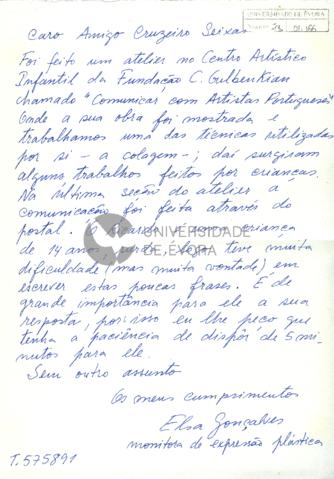 UNIVERSIDADE DE ÉVORA
Caro Amigo Cruzeiro Seixas
Foi feito um atelier no Centro Artístico
Infantil da Fundação C. Gulbenkian
chamado "Comunicar com Artistas Portugueses"
Onde a sua obra foi mostrada e
trabalhamos uma das técnicas utilizadas
por si - a colagem -; daí surgiram
alguns trabalhos feitos por crianças.
Na última seção do atelier a
comunicação foi feita através do
postal. O criança
de 14 anos teve muita
dificuldade (mas muita vontade) em
escrever estas poucas frases. É de
grande importância para ele a sua
resposta, por isso eu lhe peço que
tenha a paciência de dispôr de 5 mi-
nutos para ele.
Sem outro assunto
Os meus cumprimentos
Elsa Gonçalves
monitora de expressão plástica
T.575891
UNIVERSIDADE
DE ÉVORA